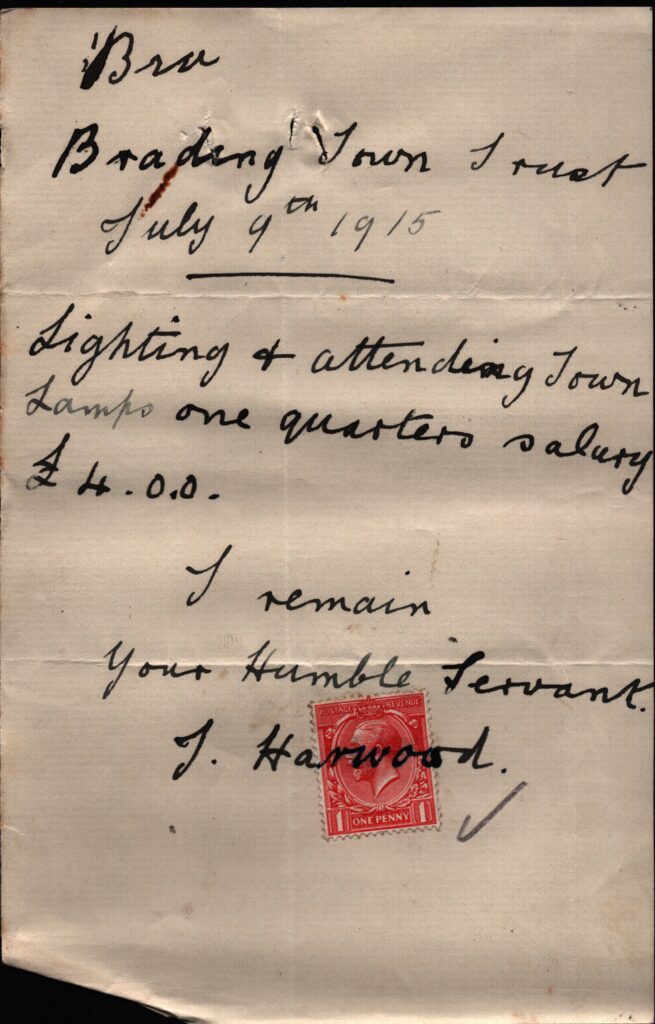 Bra
Brading Town Trust
July 9th 1915
Lighting & attending Town
Lamps one quarters salary
£4.0.0.
I remain
Your Humble Servant.
J. Harwood.
POSTAGE REVENUE
1 ONE PENNY 1